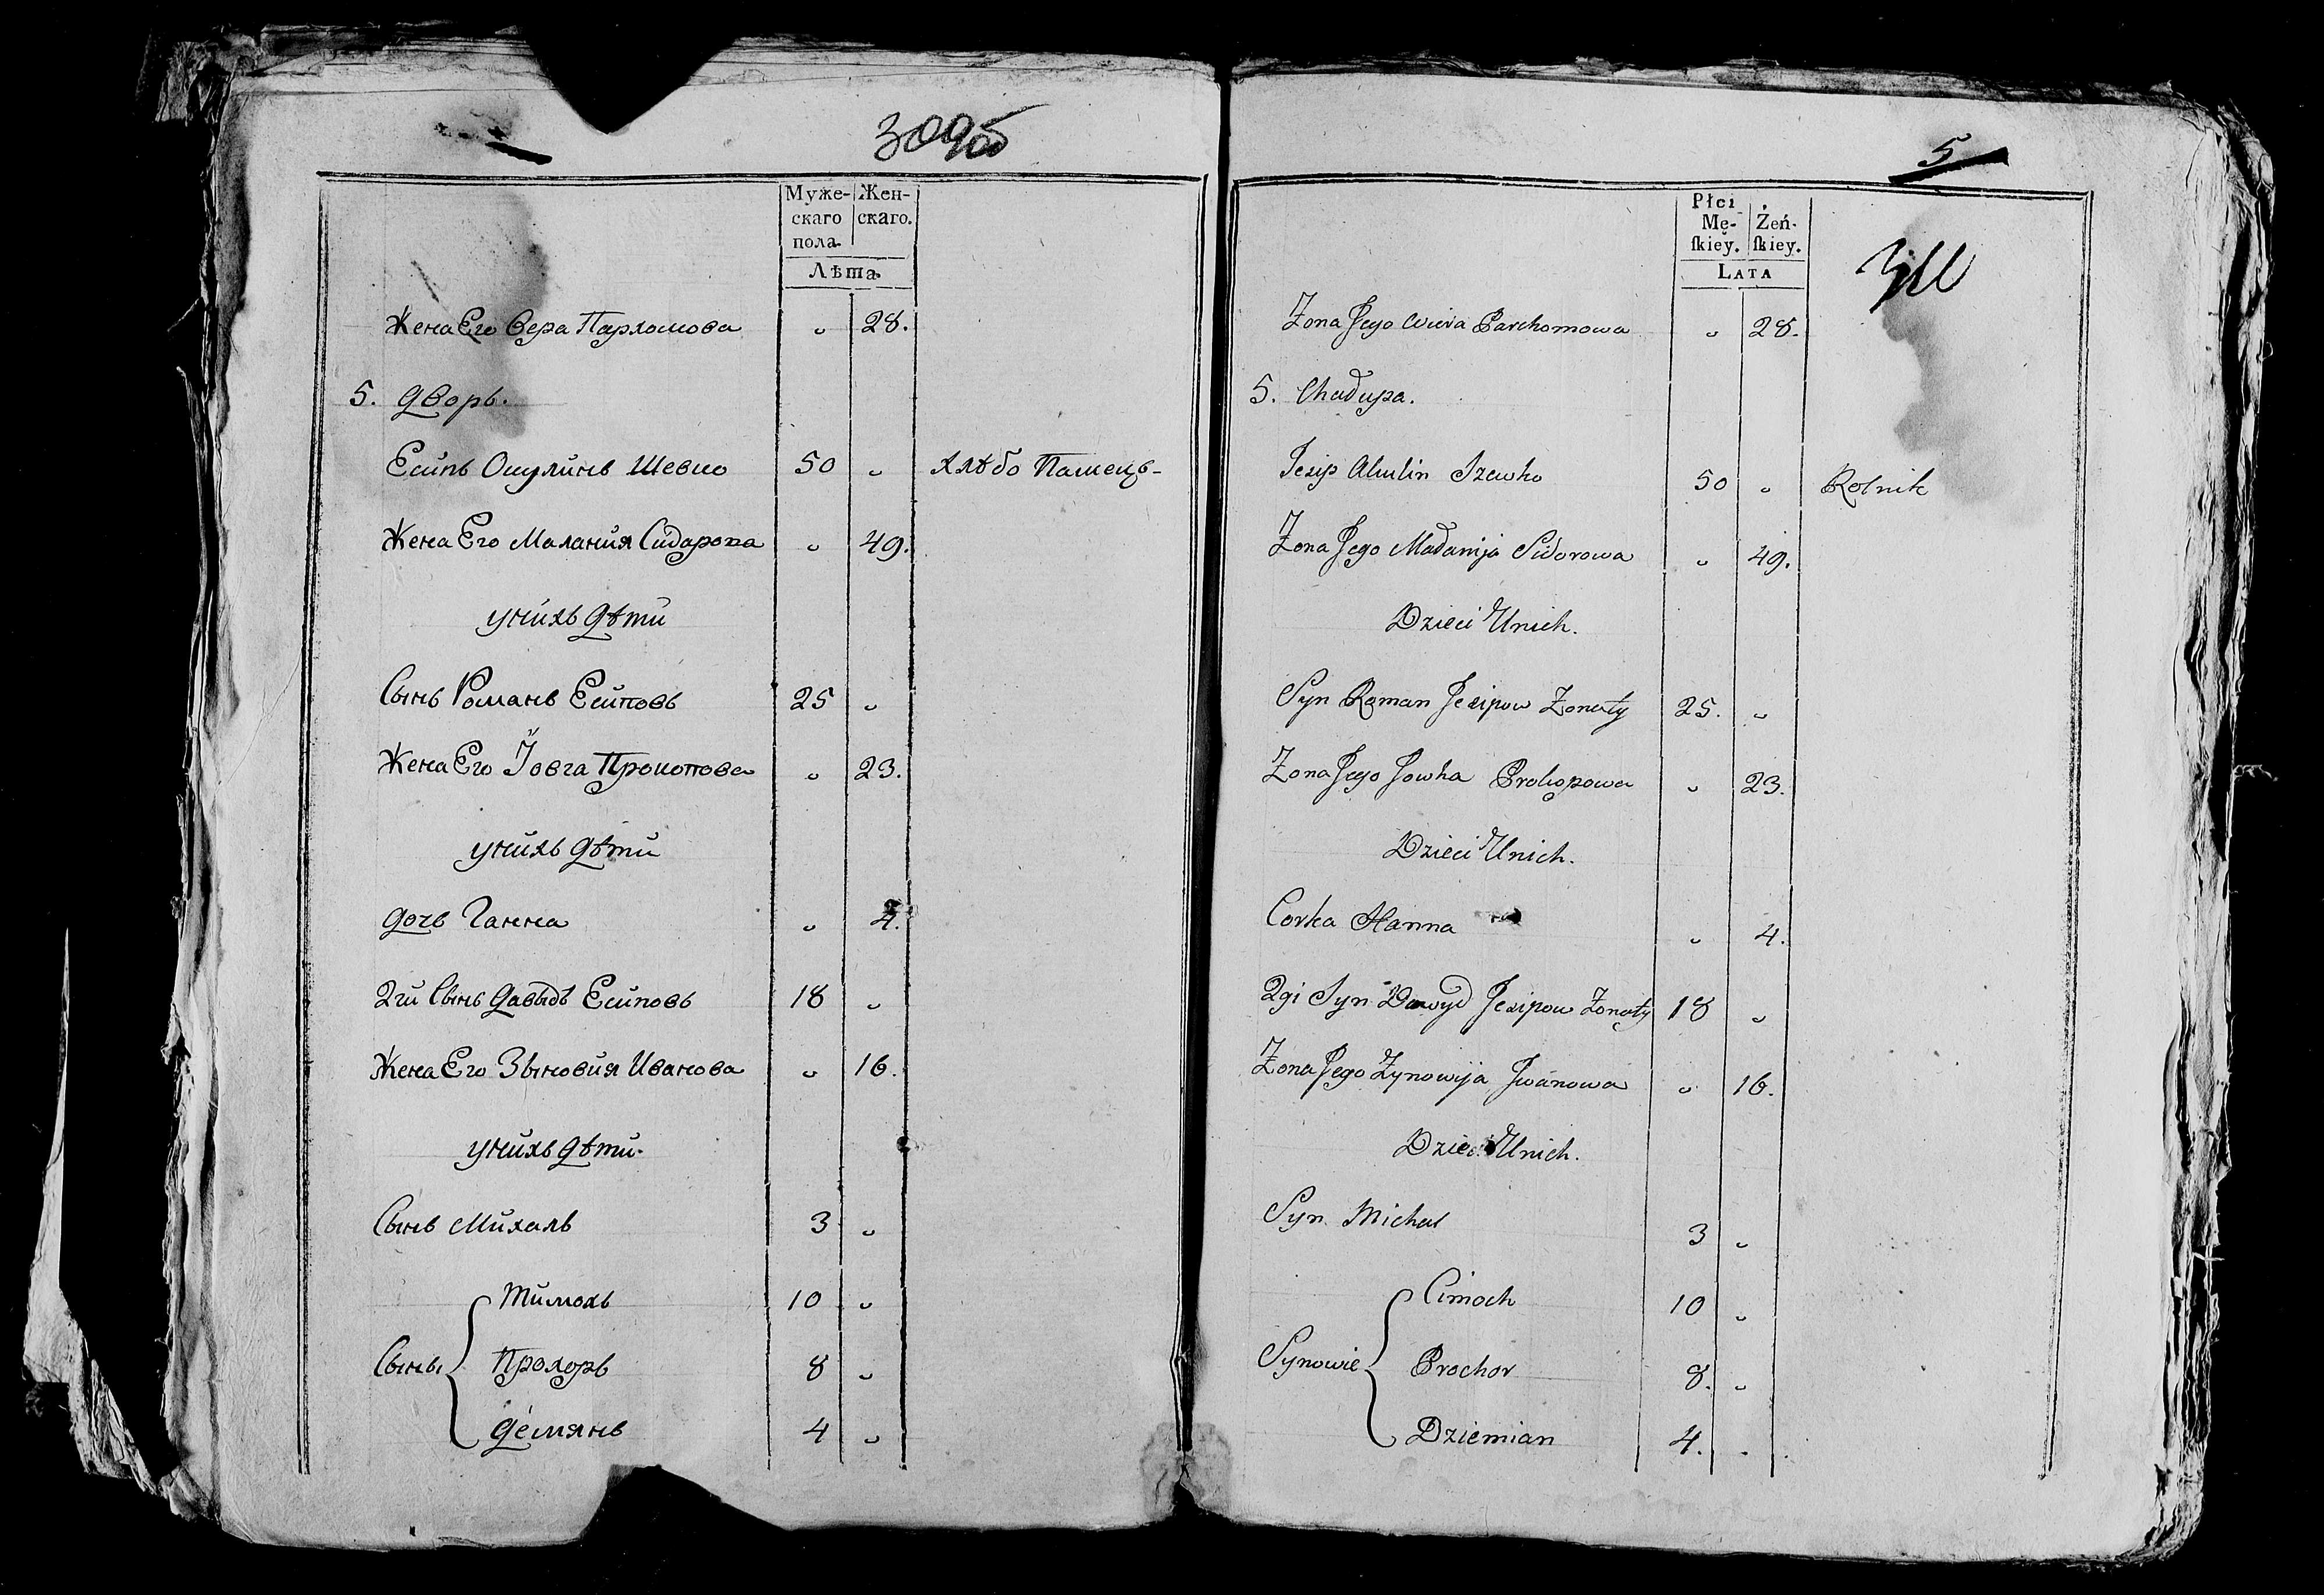 309об
Муже-
скаго
пола.
Жен-
скаго.
Лѣта
Жена Его Вера Пархомова „ 28.
5. Дворъ.
Есипъ Окулинъ Шевко 50 „ Хлѣбо Пашецъ-
Жена Его Маланія Сидарова „ 49.
Унихъ Дѣти
Сынъ Романъ Есиповъ 25 „
Жена Его Іовга Прокопова „ 23.
Унихъ Дѣти
Дочь Ганна „ 4.
2й Сынъ Давыдъ Есиповъ 18 „
Жена Его Зыновия Иванова „ 16.
Унихъ Дѣти.
Сынъ Михалъ 3 „
Тимохъ 10 „
Сыны Прохоръ 8 „
Демянъ 4 „
5
Płci
Mę-
skiey.
Żeń-
skiey.
LATA
Żona Jego Wiera Parchomowa „ 28.
5. Chałupa.
Jesip Akulin Szewko 50 „ Rolnik
Żona Jego Małanija Sidorowa „ 49.
Dzieci Unich.
Syn Roman Jesipow Żonaty 25. „
Żona Jego Jowha Prokopowa „ 23.
Dzieci Unich.
Corka Hanna „ 4.
2gi Syn Dawyd Jesipow Żonaty 18 „
Żona Jego Zynowija Jwanowa „ 16.
Dzieci Unich.
Syn Michał 3 „
Cimoch 10 „
Synowie Prochor 8. „
Dziemian 4. „